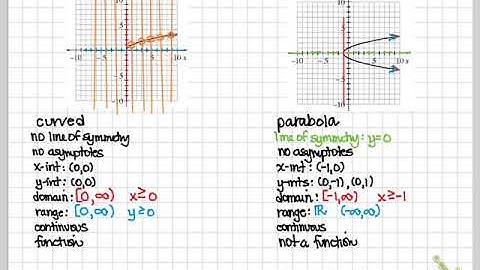 10
-10
10 x
-10
10
-10
10 x
-10
curved
no line of symmetry
no asymptotes
x-int: (0,0)
y-int: (0,0)
domain: [0,∞) x≥0
range: [0,∞) y≥0
continuous
function
parabola
line of symmetry: y=0
no asymptotes
x-int: (-1,0)
y-ints: (0,-1), (0,1)
domain: [-1,∞) x≥-1
range: ℝ (-∞,∞)
continuous
not a function